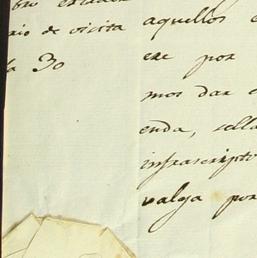 rio de vicita
30
aquellos
ere por
mos dar
enda, sella
infrascripto
valga por